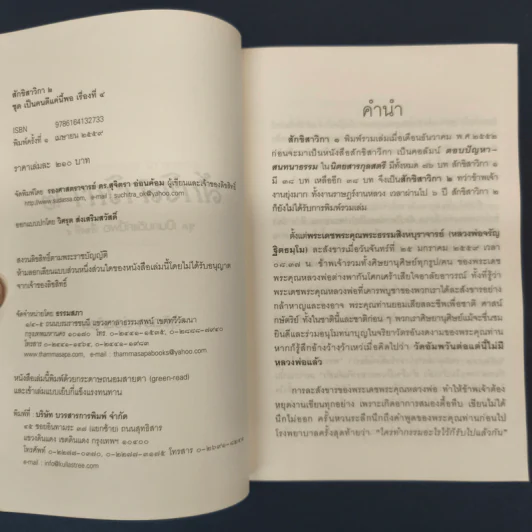 สักขิสาวิกา ๒
ชุด เป็นคนดีแค่นี้พอ เรื่องที่ ๔
ISBN 9786164132733
พิมพ์ครั้งที่ ๑ เมษายน ๒๕๕๙
ราคาเล่มละ ๒๑๐ บาท
จัดพิมพ์โดย รองศาสตราจารย์ ดร.สุจิตรา อ่อนค้อม ผู้เขียนและเจ้าของลิขสิทธิ์
http://www.kulastree.com, e mail : suchitra_ok@yahoo.com
ออกแบบปกโดย วิศรุต ส่งเสริมสวัสดิ์
สงวนลิขสิทธิ์ตามพระราชบัญญัติ
ห้ามลอกเลียนแบบส่วนหนึ่งส่วนใดของหนังสือเล่มนี้โดยไม่ได้รับอนุญาต
จากเจ้าของลิขสิทธิ์
จัดจำหน่ายโดย ธรรมสภา
ถนนบรมราชชนนี แขวงศาลาธรรมสพน์ เขตทวีวัฒนา
กรุงเทพมหานคร ๑๐๑๗๐ โทร
โทรสาร
www.thammasapa.com, e mail : thammasapabooks@yahoo.com
หนังสือเล่มนี้พิมพ์ด้วยกระดาษถนอมสายตา (green-read)
และเข้าเล่มแบบเย็บกี่แข็งแรงทนทาน
พิมพ์ที่ บริษัท บวรสารการพิมพ์ จำกัด
๔๕ ซอยอินทามระ ๓๗ (แยกซ้าย) ถนนสุทธิสาร
แขวงดินแดง เขตดินแดง กรุงเทพฯ ๑๐๔๐๐
โทรศัพท์ โทรสาร
email : info@kullastree.com
คำนำ
สักขิสาวิกา ๑ พิมพ์รวมเล่มเมื่อเดือนธันวาคม พ.ศ.๒๕๕๒
ก่อนจะมาเป็นหนังสือสักขิสาวิกา เป็นคอลัมน์ ตอบปัญหา-
สนทนาธรรม ในนิตยสารกุลสตรี มีทั้งหมด ๗๖ บท สักขิสาวิกา ๑
มี ๓๘ บท เหลืออีก ๓๘ บท จึงเป็นสักขิสาวิกา ๒ ทว่าข้าพเจ้า
งานยุ่งมาก ทั้งงานราษฎร์งานหลวง เวลาผ่านไป ๖ ปี สักขิสาวิกา ๒
ก็ยังไม่ได้รับการพิมพ์รวมเล่ม
ตั้งแต่พระเดชพระคุณพระธรรมสิงหบุราจารย์ (หลวงพ่อจรัญ
ฐิตธมฺโม) ละสังขารเมื่อวันจันทร์ที่ ๒๕ มกราคม ๒๕๕๙ เวลา
๐๘.๓๗ น. ข้าพเจ้ารวมทั้งศิษยานุศิษย์ทุกรูปคน ของพระเดช
พระคุณหลวงพ่อต่างพากันโศกเศร้าเสียใจอาลัยอาวรณ์ ทั้งที่รู้ว่า
พระเดชพระคุณหลวงพ่อที่เคารพบูชาของพวกเราได้ละสังขารอย่าง
กล้าหาญและองอาจ พระคุณท่านยอมเสียสละชีวิตเพื่อชาติ ศาสน์
กษัตริย์ ทั้งในชาตินี้และชาติก่อน ๆ พวกเราศิษยานุศิษย์แม้จะชื่นชม
ยินดีและร่วมอนุโมทนาบุญในจริยาวัตรอันงดงามของพระคุณท่าน
หากก็รู้สึกอ้างว้างว้าเหว่เมื่อคิดไปว่า วัดอัมพวันต่อแต่นี้ไปไม่มี
หลวงพ่อแล้ว
การละสังขารของพระเดชพระคุณหลวงพ่อ ทำให้ข้าพเจ้าต้อง
หยุดงานเขียนทุกอย่าง เพราะเกิดอาการสมองตื้อทึบ เขียนไม่ได้
นึกไม่ออก ครั้นหวนระลึกนึกถึงคำพูดของพระคุณท่านก่อนไป
โรงพยาบาลครั้งสุดท้ายว่า “ใครทำกรรมอะไรไว้ก็รับไปแล้วกัน”